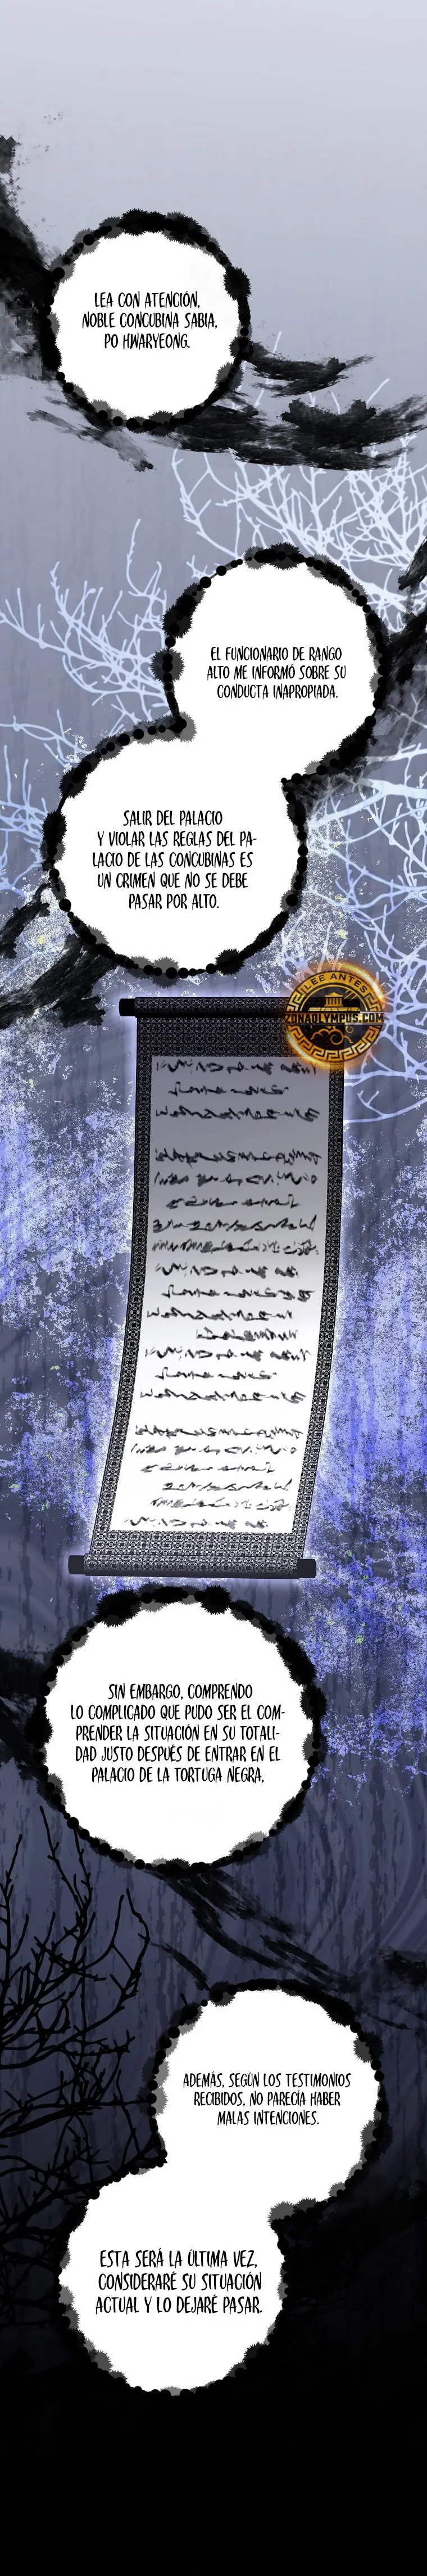 LEA CON ATENCIÓN,
NOBLE CONCUBINA SABIA,
PO HWARYEONG.
EL FUNCIONARIO DE RANGO
ALTO ME INFORMÓ SOBRE SU
CONDUCTA INAPROPIADA.
SALIR DEL PALACIO
Y VIOLAR LAS REGLAS DEL PA-
LACIO DE LAS CONCUBINAS ES
UN CRIMEN QUE NO SE DEBE
PASAR POR ALTO.
LEE ANTES
ZONAOLYMPUS.COM
SIN EMBARGO, COMPRENDO
LO COMPLICADO QUE PUDO SER EL COM-
PRENDER LA SITUACIÓN EN SU TOTALI-
DAD JUSTO DESPUÉS DE ENTRAR EN EL
PALACIO DE LA TORTUGA NEGRA,
ADEMÁS, SEGÚN LOS TESTIMONIOS
RECIBIDOS, NO PARECÍA HABER
MALAS INTENCIONES.
ESTA SERÁ LA ÚLTIMA VEZ,
CONSIDERARÉ SU SITUACIÓN
ACTUAL Y LO DEJARÉ PASAR.